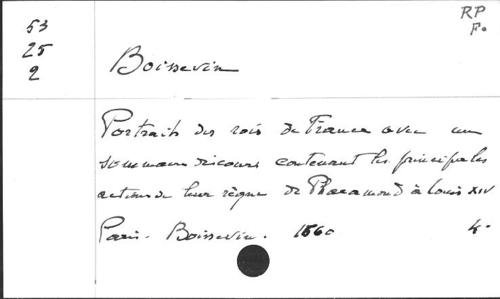 53
25
2
RP
F.
Boissevin
Portraits des rois de France avec un
sommaire discours contenant les principales
actions de leur règne de Pharamond à Louis XIV
Paris. Boissevin. 1660 4.